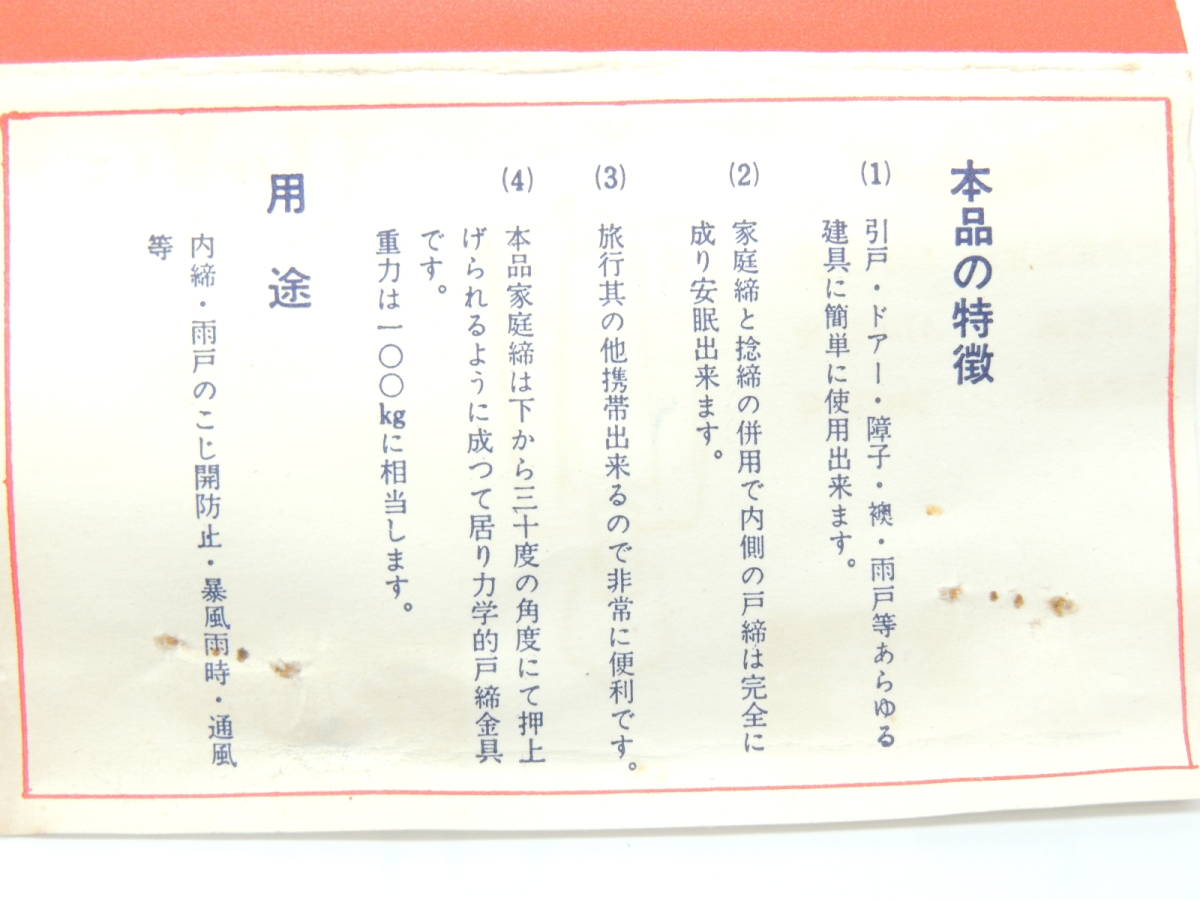 本品の特徴
(1) 引戸・ドアー・障子・襖・雨戸等あらゆる
建具に簡単に使用出来ます。
(2) 家庭締と捻締の併用で内側の戸締は完全に
成り安眠出来ます。
(3) 旅行其の他携帯出来るので非常に便利です。
(4) 本品家庭締は下から三十度の角度にて押上
げられるように成つて居り力学的戸締金具
です。
重力は一〇〇kgに相当します。
用途
内締・雨戸のこじ開防止・暴風雨時・通風
等